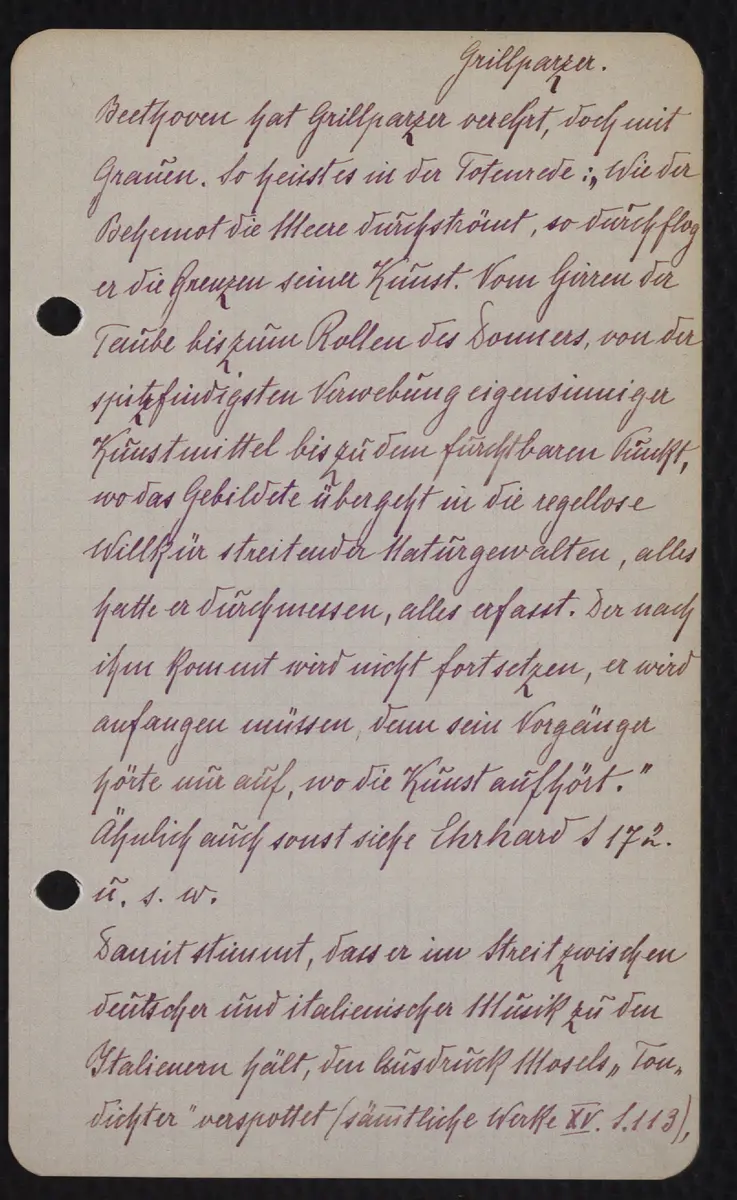 Grillparzer.
Beethoven hat Grillparzer verehrt, doch mit
Grauen. So heisst es in der Totenrede: „Wie der
Behemot die Meere durchströmt, so durchflog
er die Grenzen seiner Kunst. Vom Girren der
Taube bis zum Rollen des Donners, von der
spitzfindigsten Verwebung eigensinniger
Kunstmittel bis zu dem furchtbaren Punkt,
wo das Gebildete übergeht in die regellose
Willkür streitender Naturgewalten, alles
hatte er durchmessen, alles erfasst. Der nach
ihm kommt wird nicht fortsetzen, er wird
anfangen müssen, denn sein Vorgänger
hörte nur auf, wo die Kunst aufhört.“
Ähnlich auch sonst siehe Ehrhard S 172.
u. s. w.
Damit stimmt, dass er im Streit zwischen
deutscher und italienischer Musik zu den
Italienern hält, den Ausdruck Mosels „Ton-
dichter“ verspottet (sämtliche Werke XV. S. 113),